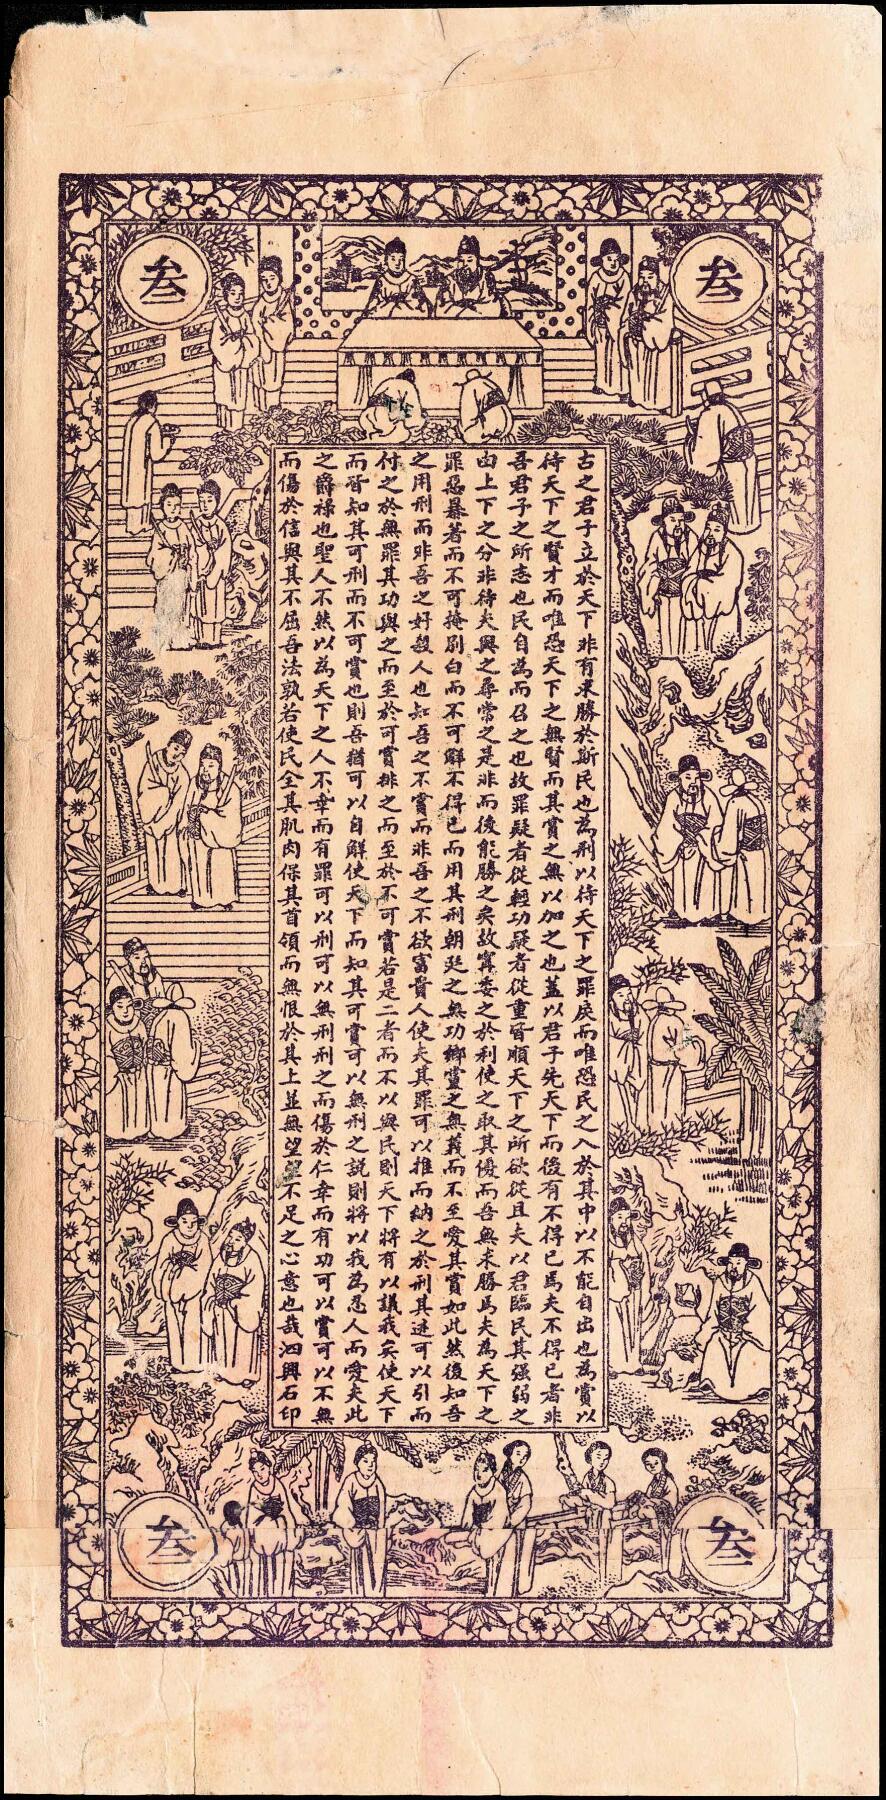 叁
叁
古之君子立於天下非有求勝於斯民也為刑以待天下之罪戾而唯恐民之入於其中以不能自出也為賞以
待天下之賢才而唯恐天下之無賢而其賞之無以加之也蓋以君子先天下而後有不得已焉夫不得已者非
吾君子之所志也民自為而召之也故罪疑者從輕功疑者從重皆順天下之所欲從且夫以君臨民其强弱之
由上下之分非待夫興之尋常之是非而後能勝之矣故寧委之於利使之取其優而吾無求勝焉夫為天下之
罪惡暴著而不可掩別白而不可解不得已而用其刑朝廷之無功鄉黨之無義而不至愛其賞如此然後知吾
之用刑而非吾之好殺人也知吾之不賞而非吾之不欲富貴人使夫其罪可以推而納之於刑其迹可以引而
付之於無罪其功與之而至於可賞排之而至於不可賞若是二者而不以與民則天下將有以議我矣使天下
而皆知其可刑而不可賞也則吾猶可以自解使天下而知其可賞可以無刑之說則將以我為忍人而愛夫此
之爵祿也聖人不然以為天下之人不幸而有罪可以刑可以無刑刑之而傷於仁幸而有功可以賞可以不無
而傷於信與其不屈吾法孰若使民全其肌肉保其首領而無恨於其上並無望望不足之心意也哉泗興石印
叁
叁